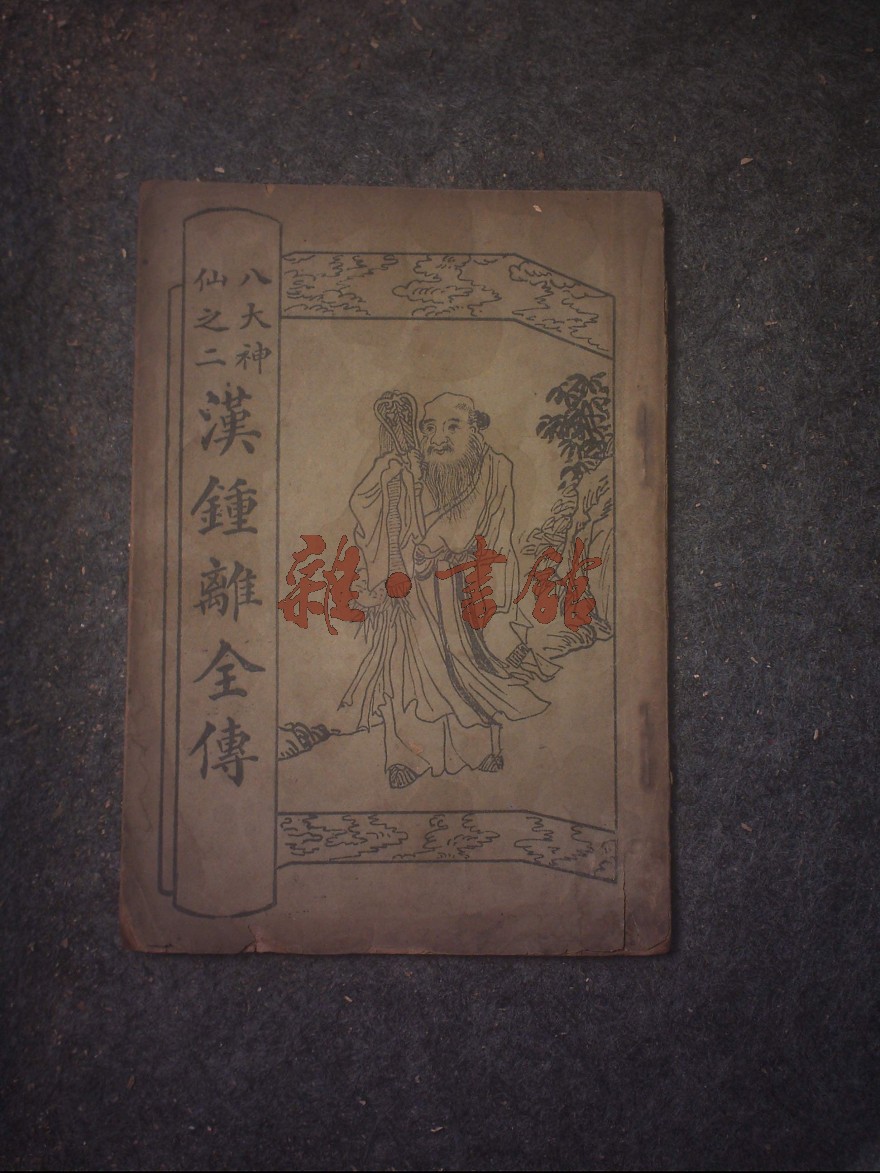 八大神
仙之二
漢鍾離全傳
雜·書館